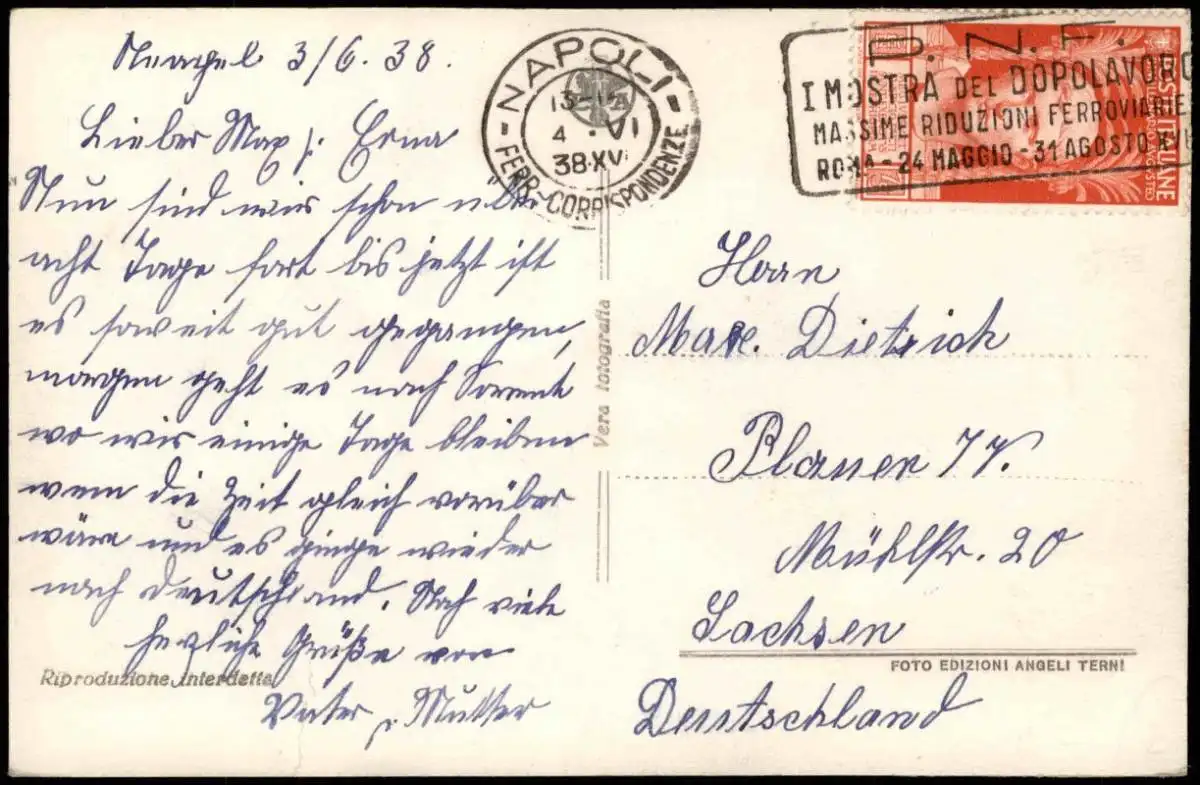 Neapel 3/6. 38.
Lieber Max u. Erna
Nun sind wir schon über
acht Tage fort bis jetzt ist
es soweit gut gegangen,
morgen geht es nach Sorrent
wo wir einige Tage bleiben
wenn die Zeit gleich vorüber
wäre und es ginge wieder
nach Deutschland. Noch viele
herzliche Grüße von
Vater u. Mutter
Riproduzione interdetta
Vera fotografia
NAPOLI
4 · VI
38·XVI
FERR. CORRISPONDENZE
P. N. F.
I MOSTRA DEL DOPOLAVORO
MASSIME RIDUZIONI FERROVIARIE
ROMA - 24 MAGGIO - 31 AGOSTO XVI
POSTE ITALIANE
Herrn
Max. Dietrich
Plauen
Mühlstr. 20
Sachsen
FOTO EDIZIONI ANGELI TERNI
Deutschland